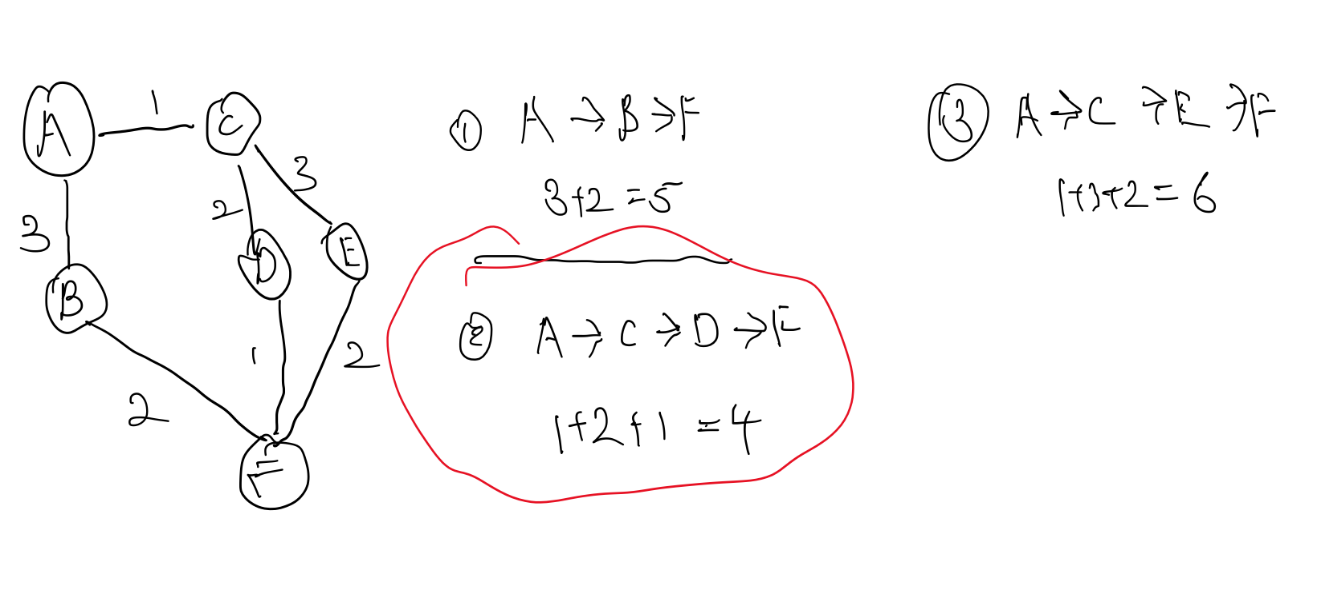 A
1
C
3
2
3
D
E
B
1
2
2
F
① A → B → F
3+2=5
② A → C → D → F
1+2+1=4
③ A → C → E → F
1+3+2=6